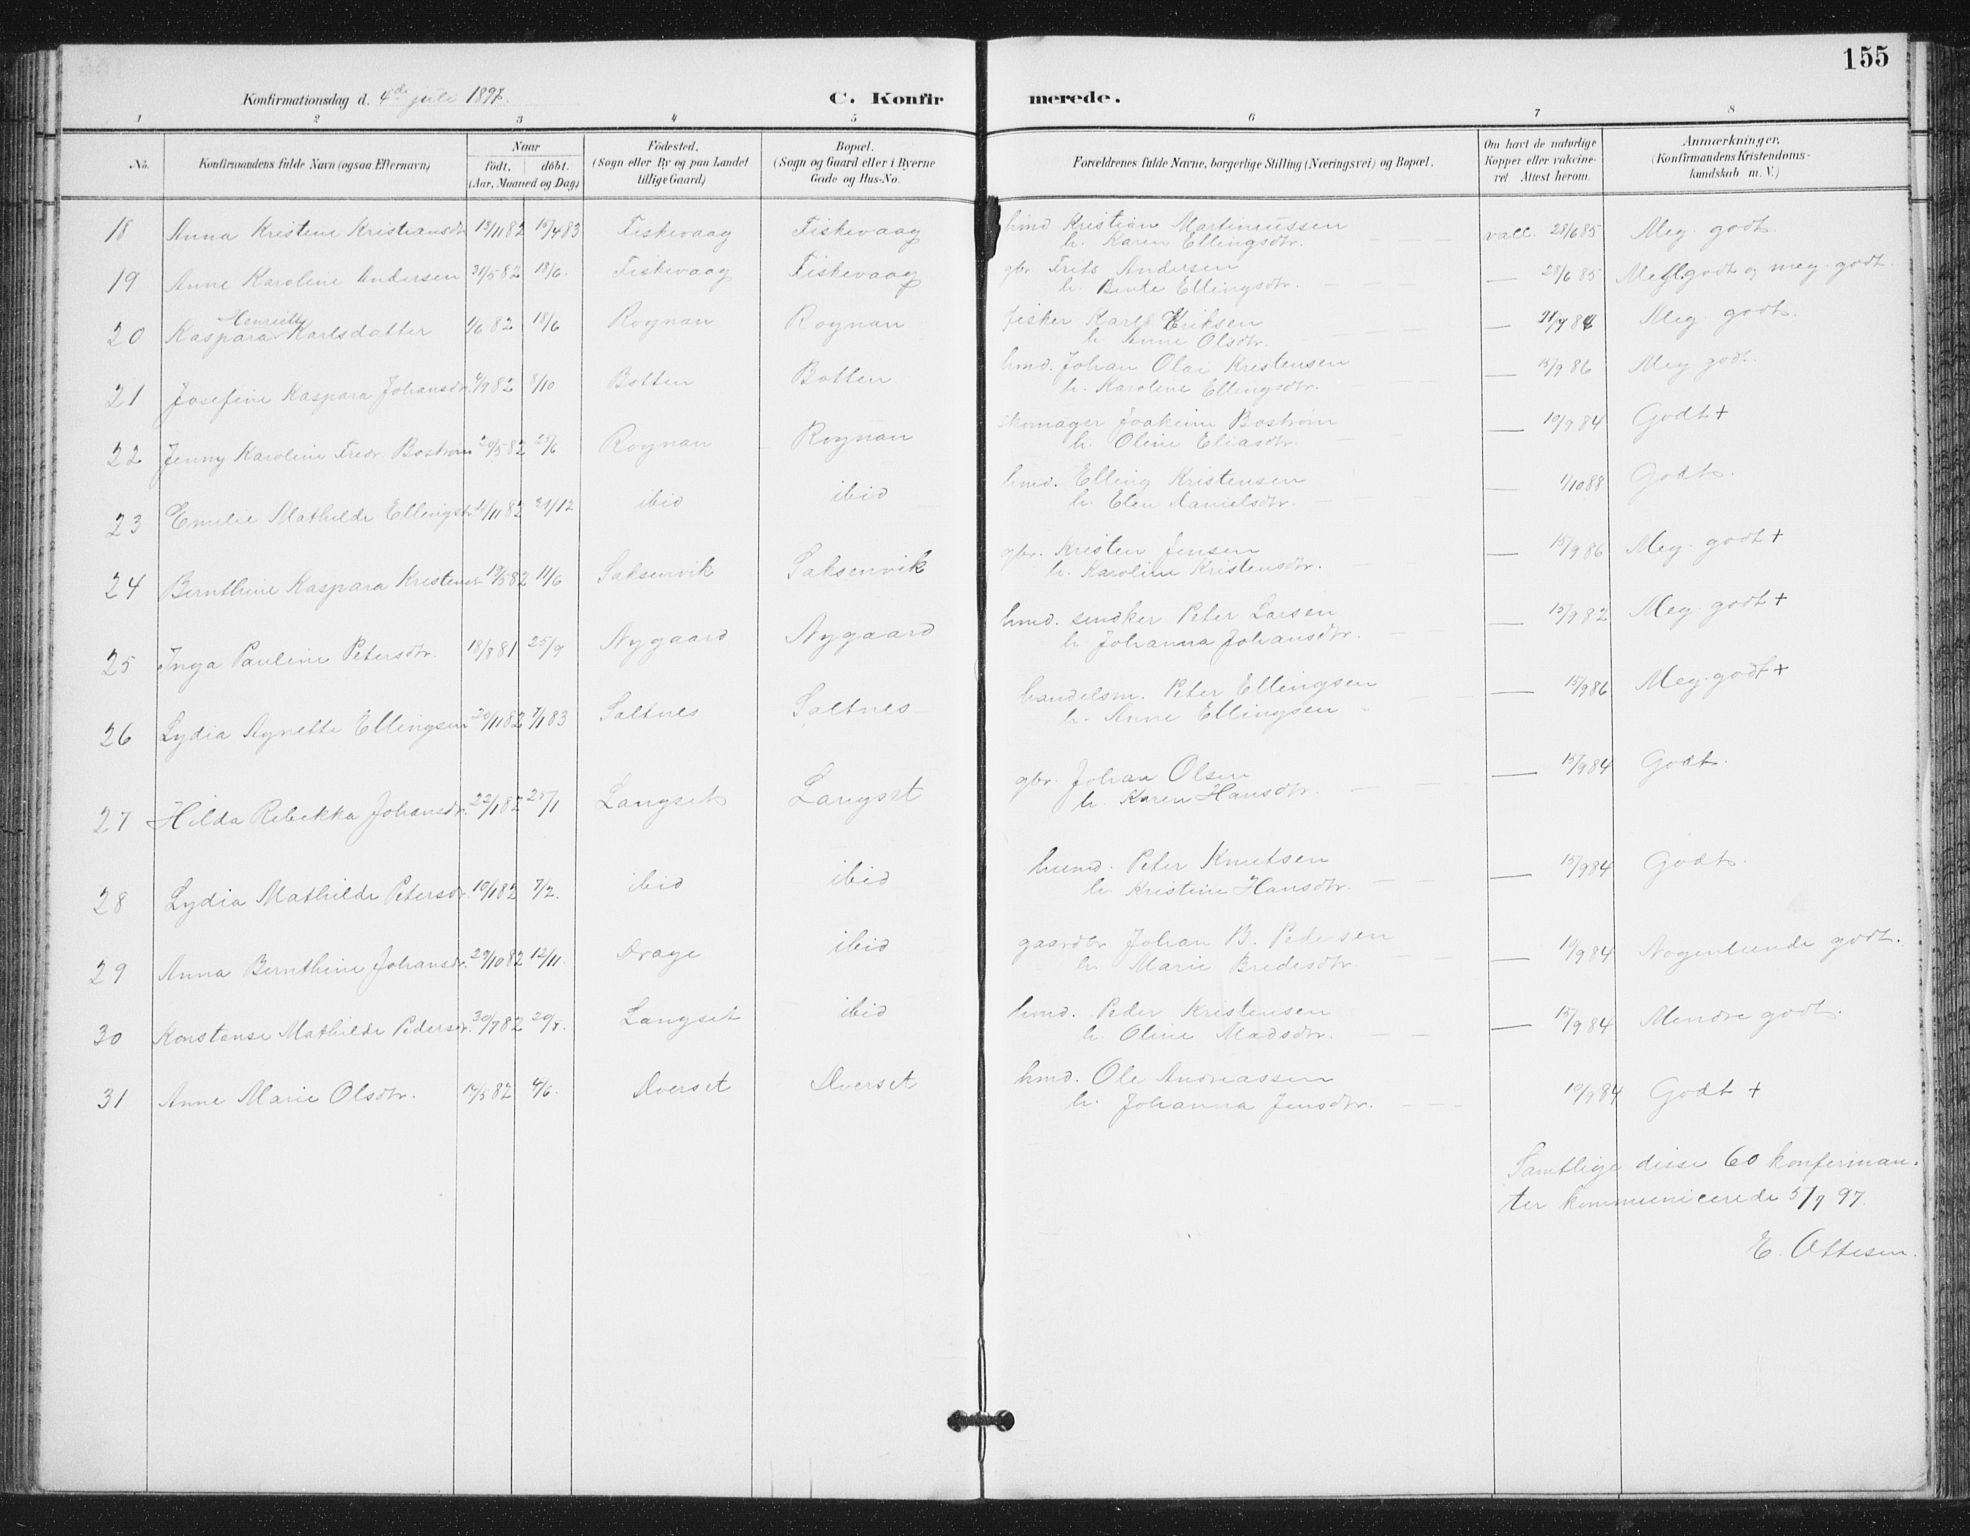 155
Konfirmationsdag d. 4de juli 1897. C. Konfirmerede.
1 2 3 4 5 6 7 8
No. Konfirmandens fulde Navn (ogsaa Efternavn) Naar født. døbt. (Aar, Maaned og Dag) Fødested. (Sogn eller By og paa Landet tillige Gaard) Bopæl. (Sogn og Gaard eller i Byerne Gade og Hus-No. Forældrenes fulde Navne, borgerlige Stilling (Næringsvei) og Bopæl. Om havt de naturlige Kopper eller vakcineret Attest herom. Anmærkninger. (Konfirmandens Kristendomskundskab m. V.)
18 Anna Kristine Kristiansdtr 13/11 82 15/4 83 Fiskevaag Fiskevaag hmd Kristian Martinussen vacc. 28/6 85 Meg. godt.
h. Karen Ellingsdtr.
19 Anne Karoline Andersen 31/5 82 18/6. Fiskevaag Fiskevaag gbr Frits Andersen — 28/6 85 Megl. godt og meg. godt.
h. Bente Ellingsdtr.
20 Kaspara Henriette Karlsdatter 1/6 82 18/6 Rognan Rognan fisker Karl Eriksen — 21/9 84 Meg. godt.
h. Anne Olsdtr.
21 Josefine Kaspara Johansdtr. 4/9 82 8/10 Botten Botten hmd. Johan Olai Kristensen — 15/9 86 Meg godt.
h. Karoline Ellingsdtr.
22 Jenny Karoline Fredr. Bostrøm 20/5 82 29/6 Rognan Rognan skomager Joakim Bostrøm — 10/9 84 Godt +
h. Oline Eliasdtr.
23 Emilie Mathilde Ellingsdtr 21/11 82 31/12 ibid ibid hmd. Elling Kristensen — 1/10 88 Godt.
h. Elen Danielsdtr.
24 Bernthine Kaspara Kristensdtr 19/5 82 11/6 Saksenvik Saksenvik gbr. Kristen Jensen — 15/9 86 Meg. godt +
h. Karoline Kristensdtr.
25 Inga Pauline Petersdtr. 18/8 81 25/9 Nygaard Nygaard hmd. snedker Peter Larsen — 15/9 82 Meg. godt +
h. Johanna Johansdtr.
26 Lydia Agnette Ellingsen 20/11 82 7/1 83 Saltnes Saltnes handelsm. Peter Ellingsen — 15/9 86 Meg. godt +
h. Anne Ellingsen
27 Hilda Rebekka Johansdtr. 22/1 82 25/1 Langset Langset gbr. Johan Olsen — 15/9 84 Godt.
h. Karen Hansdtr.
28 Lydia Mathilde Petersdtr. 10/1 82 7/2. ibid ibid husmd. Peter Knutsen — 15/9 84 Godt.
h. Kristine Hansdtr.
29 Anna Bernthine Johansdtr. 29/10 82 12/11. Drage ibid gaardbr Johan B. Pedersen — 19/9 84 Nogenlunde godt.
h. Marie Bredesdtr
30 Konstanse Mathilde Pedersdtr. 30/7 82 20/8. Langset ibid hmd. Peder Kristensen — 15/9 84 Mindre godt.
h. Oline Madsdtr.
31 Anne Marie Olsdtr. 14/5 82 4/6. Dverset Dverset hmd. Ole Andreassen 10/9 84 Godt +
h. Johanna Jensdtr.
Samtlige disse 60 konfirman-
ter kommunicerede 5/7 97.
E. Ottesen.